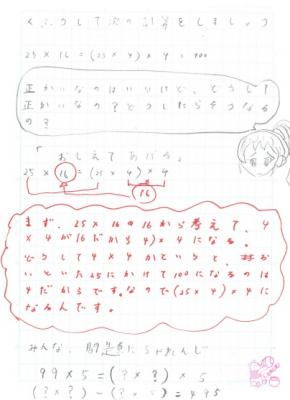 くふうして次の計算をしましょう
25×16=(25×4)×4=400
正かいなのはいいけど、どうして
正かいなの?どうしたらそうなる
の?
「おしえてあげる」
25×16=(25×4)×4
16
まず、25×16の16から考えて、4
×4が16だから4)×4になる。
どうして4×4かというと、
といた25にかけて100になるのは
4だからです。なので(25×4)×4に
なるんです。
みんな、
99×5=(?×?)×5
(?×?)-(?×?)=495